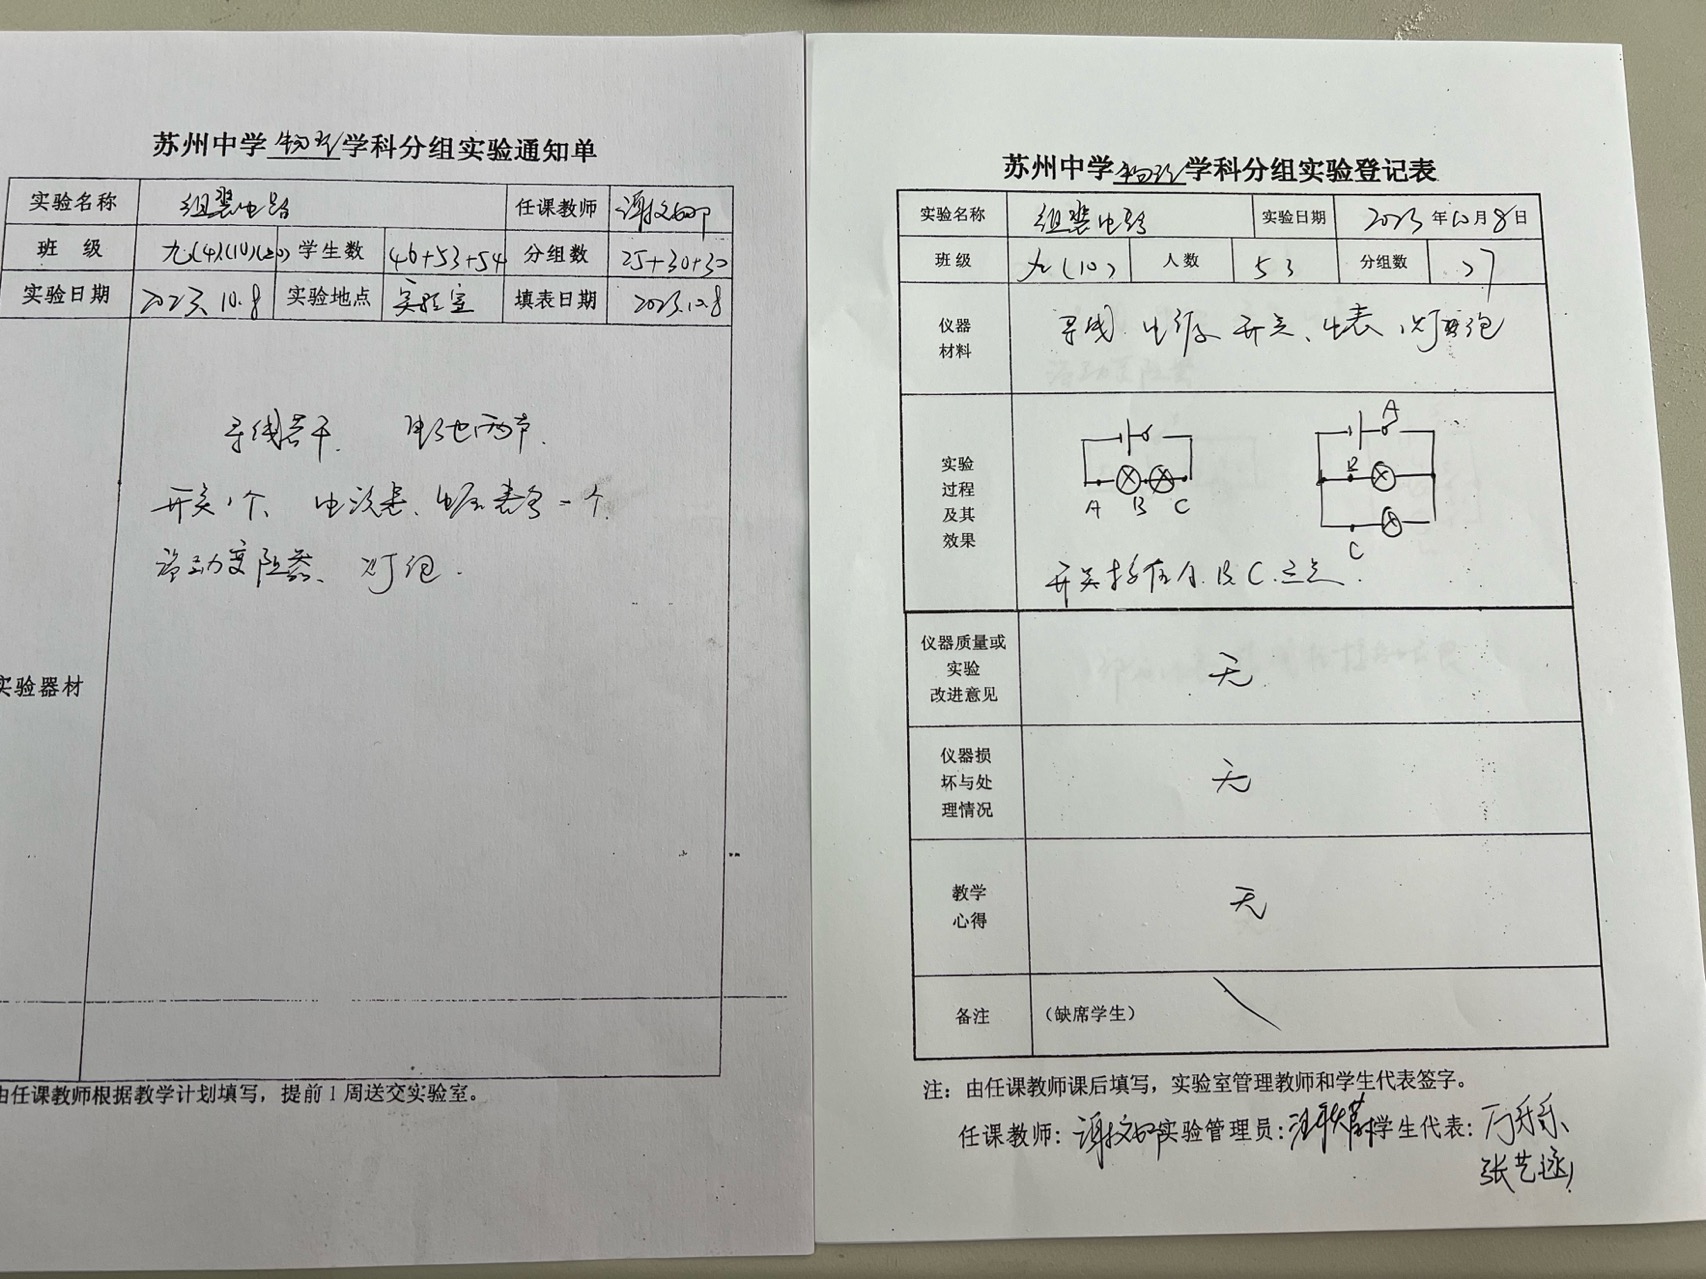 苏州中学物理学科分组实验通知单
实验名称 组装电路 任课教师 谢文
班 级 九(4)(10)(20) 学生数 46+53+54 分组数 25+30+30
实验日期 2023.10.8 实验地点 实验室 填表日期 2023.10.8
实验器材
导线若干. 电池两节.
开关1个、电流表、电压表各一个
滑动变阻器、灯泡.
由任课教师根据教学计划填写，提前1周送交实验室。
苏州中学物理学科分组实验登记表
实验名称 组装电路 实验日期 2023年10月8日
班级 九(10) 人数 53 分组数 27
仪器
材料
导线. 电源 开关、电表、灯泡
实验
过程
及其
效果
A B C
A
B
C
开关接在A.B.C.三点.
仪器质量或
实验
改进意见
无
仪器损
坏与处
理情况
无
教学
心得
无
备注 （缺席学生）
注：由任课教师课后填写，实验室管理教师和学生代表签字。
任课教师: 谢文 实验管理员: 学生代表:
张艺